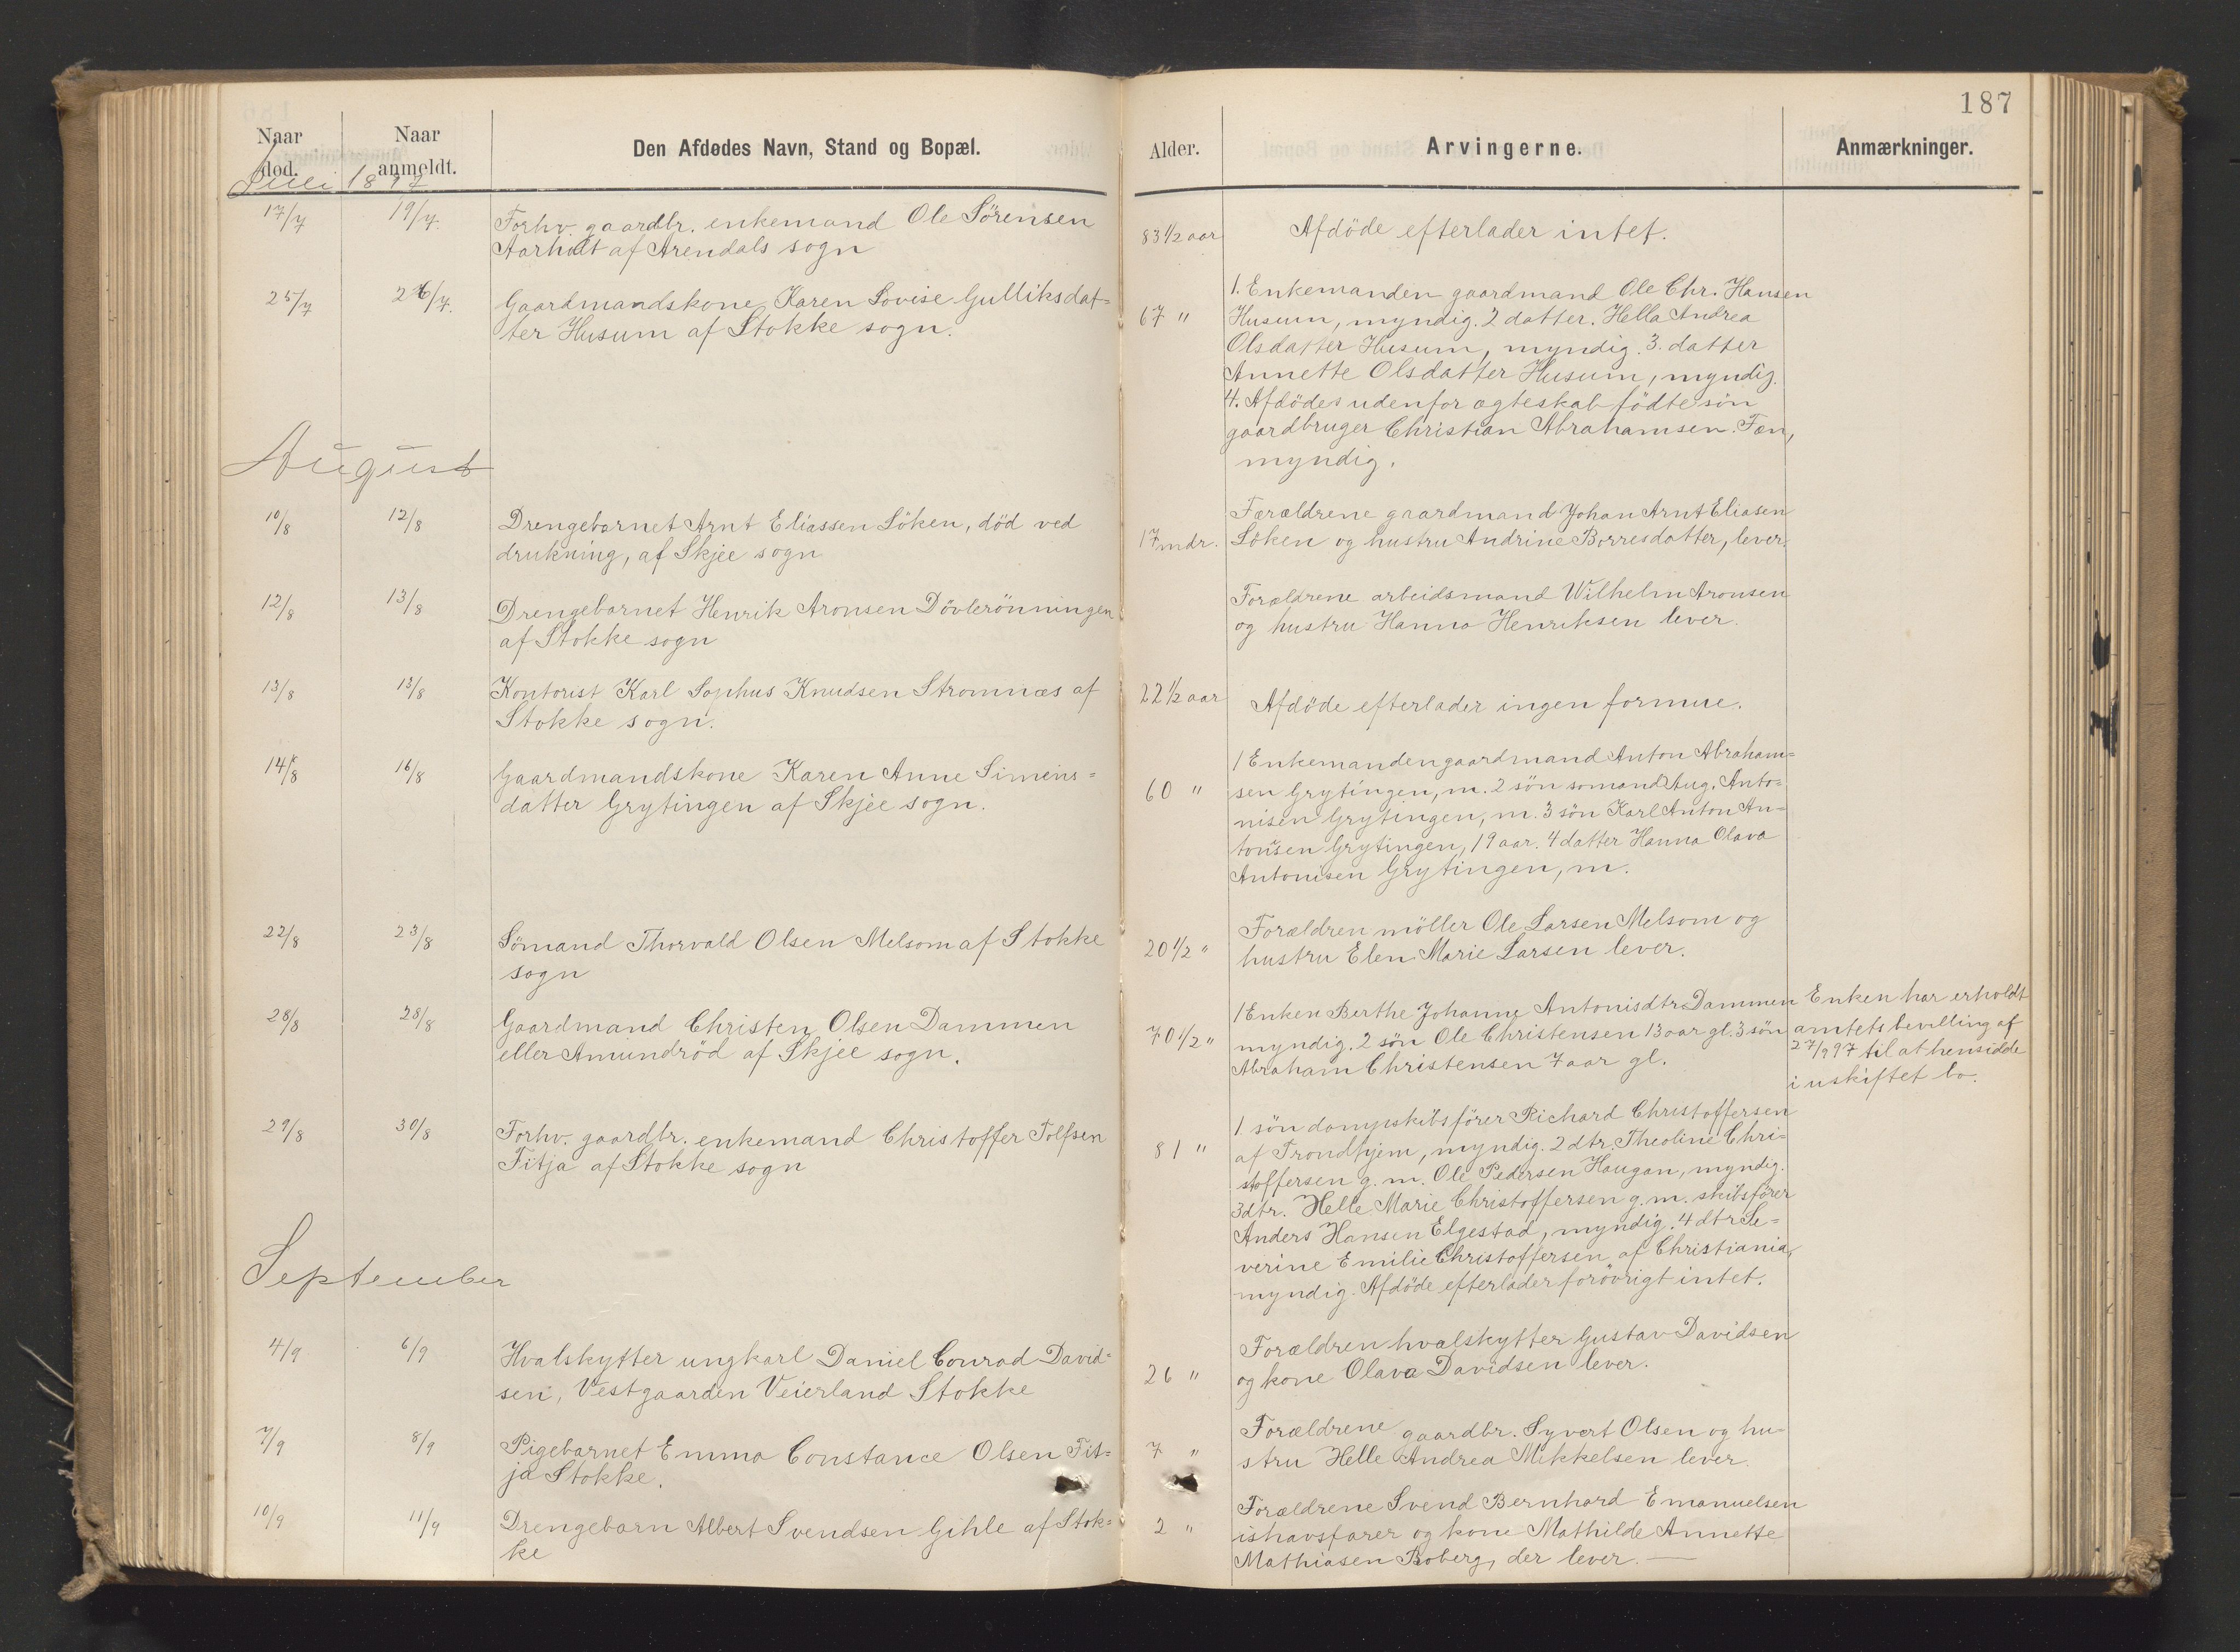 187
Naar død.
Naar anmeldt.
Den Afdødes Navn, Stand og Bopæl.
Alder.
Arvingerne.
Anmærkninger.
Juli 1897
17/7 19/7. Forhv. gaardbr. enkemand Ole Sörensen
Aarholt af Arendals sogn
83 1/2 aar
Afdöde efterlader intet.
25/7 26/7. Gaardmandskone Karen Lovise Gulliksdat=
ter Husum af Stokke sogn.
67 "
1. Enkemanden gaardmand Ole Chr. Hansen
Husum, myndig. 2 datter. Hella Andrea
Olsdatter Husum, myndig. 3. datter
Annette Olsdatter Husum, myndig.
4. Afdödes udenfor ægteskab födte sön
gaardbruger Christian Abrahamsen Fæn,
myndig.
August
10/8 12/8 Drengebarnet Arnt Eliassen Löken, död ved
drukning, af Skjee sogn
17 mdr.
Forældrene gaardmand Johan Arnt Eliasen
Löken og hustru Andrine Borresdatter, lever.
12/8 13/8 Drengebarnet Henrik Aronsen Dövlerönningen
af Stokke sogn
Forældrene arbeidsmand Wilhelm Aronsen
og hustru Hanna Henriksen lever.
13/8 13/8 Kontorist Karl Sophus Knudsen Stromnæs af
Stokke sogn.
22 1/2 aar
Afdöde efterlader ingen formue.
14/8 16/8 Gaardmandskone Karen Anne Simens=
datter Grytingen af Skjee sogn.
60 "
1 Enkemanden gaardmand Anton Abraham=
sen Grytingen, m. 2 sön somand Aug. Anto=
nisen Grytingen, m. 3 sön Karl Anton An=
tonsen Grytingen, 19 aar. 4 datter Hanna Olava
Antonisen Grytingen, m.
22/8 23/8 Sömand Thorvald Olsen Melsom af Stokke
sogn
20 1/2 "
Forældren möller Ole Larsen Melsom og
hustru Elen Marie Larsen lever.
28/8 28/8 Gaardmand Christen Olsen Dammen
eller Amundröd af Skjee sogn.
70 1/2 "
1 Enken Berthe Johanne Antonisdtr. Dammen
myndig. 2 sön Ole Christensen 13 aar gl. 3 sön
Abraham Christensen 7 aar gl.
Enken har erholdt
amtets bevilling af
27/9 97 til at hensidde
i uskiftet bo.
29/8 30/8 Forhv. gaardbr. enkemand Christoffer Tolfsen
Fitja af Stokke sogn
81 "
1. sön dampskibsförer Richard Christoffersen
af Trondhjem, myndig. 2 dtr. Theoline Chri=
stoffersen g. m. Ole Pedersen Haugan, myndig.
3 dtr. Helle Marie Christoffersen g. m. skibsförer
Anders Hansen Elgestad, myndig. 4 dtr Se=
verine Emilie Christoffersen af Christiania,
myndig. Afdöde efterlader forövrigt intet.
September
4/9 6/9 Hvalskytter ungkarl Daniel Conrad David=
sen, Vestgaarden Veierland Stokke
26 "
Forældren hvalskytter Gustav Davidsen
og kone Olava Davidsen lever.
7/9 8/9 Pigebarnet Emma Constance Olsen Fit=
ja Stokke.
7 "
Forældrene gaardbr. Syvert Olsen og hu-
stru Helle Andrea Mikkelsen lever.
10/9 11/9 Drengebarn Albert Svendsen Gihle af Stok=
ke
2 "
Forældrene Svend Bernhard Emanuelsen
ishavsfarer og kone Mathilde Annette
Mathiasen Boberg, der lever. —